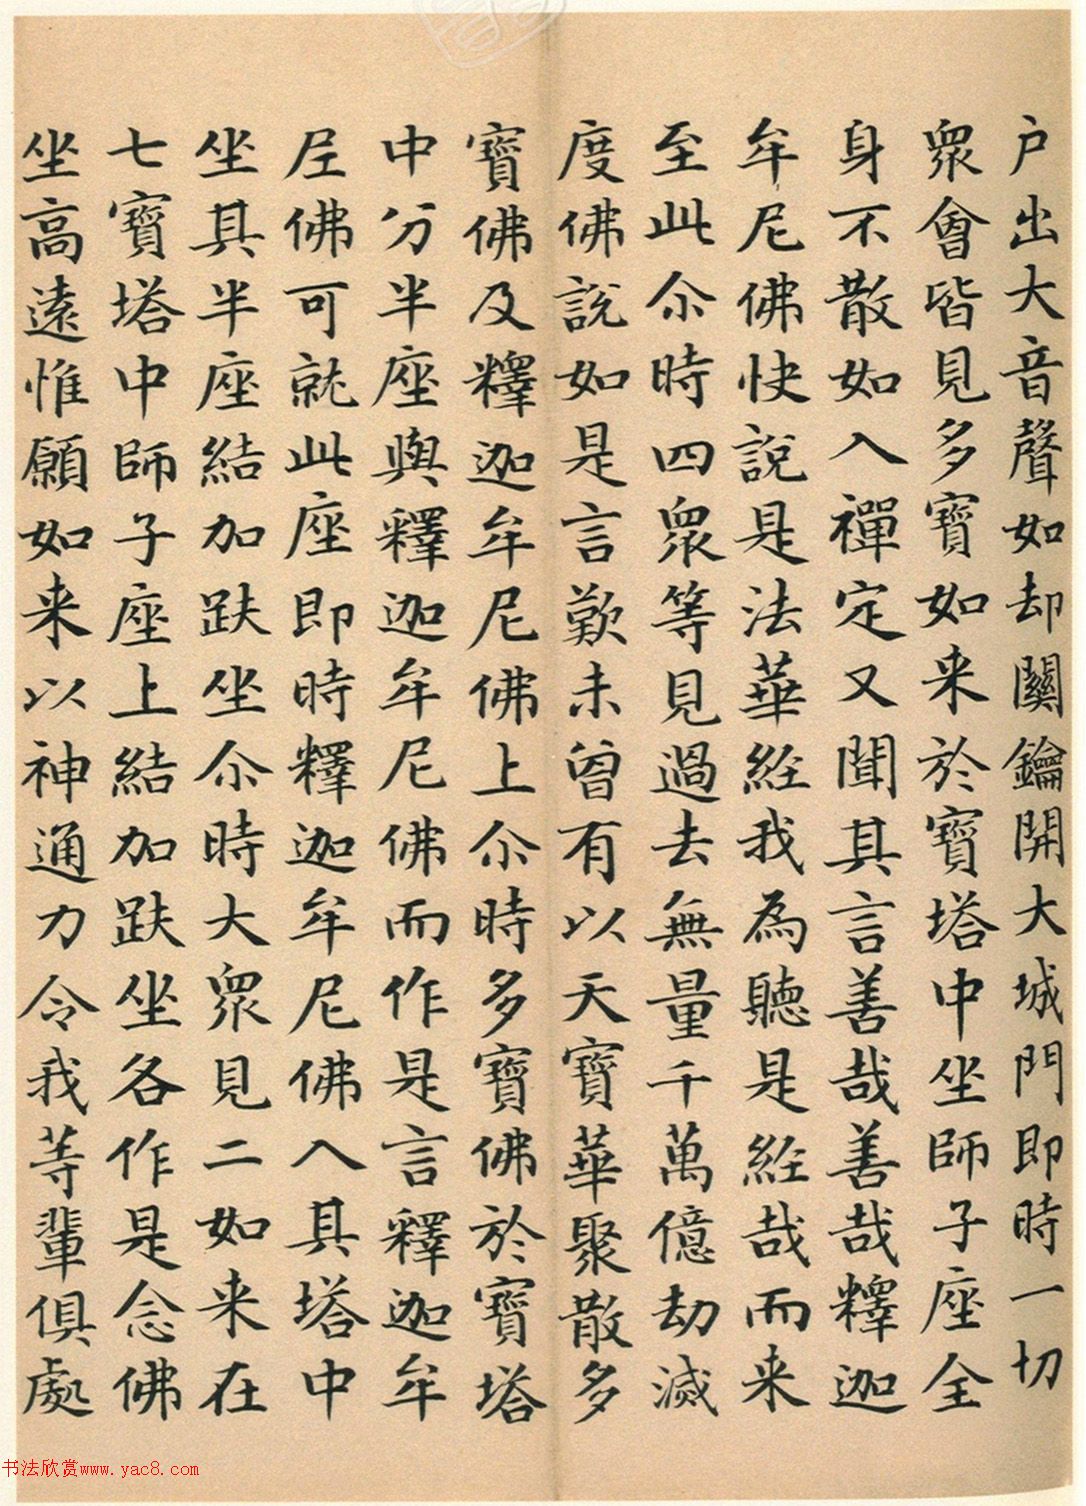 户出大音聲如却關鑰開大城門即時一切
眾會皆見多寶如来於寶塔中坐師子座全
身不散如入禪定又聞其言善哉善哉釋迦
牟尼佛快說是法華經我為聽是經哉而来
至此尒時四眾等見過去無量千萬億劫滅
度佛說如是言歎未曾有以天寶華聚散多
寶佛及釋迦牟尼佛上尒時多寶佛於寶塔
中分半座與釋迦牟尼佛而作是言釋迦牟
尼佛可就此座即時釋迦牟尼佛入其塔中
坐其半座結加趺坐尒時大眾見二如来在
七寶塔中師子座上結加趺坐各作是念佛
坐高遠惟願如来以神通力令我等輩俱處
书法欣赏www.yac8.com